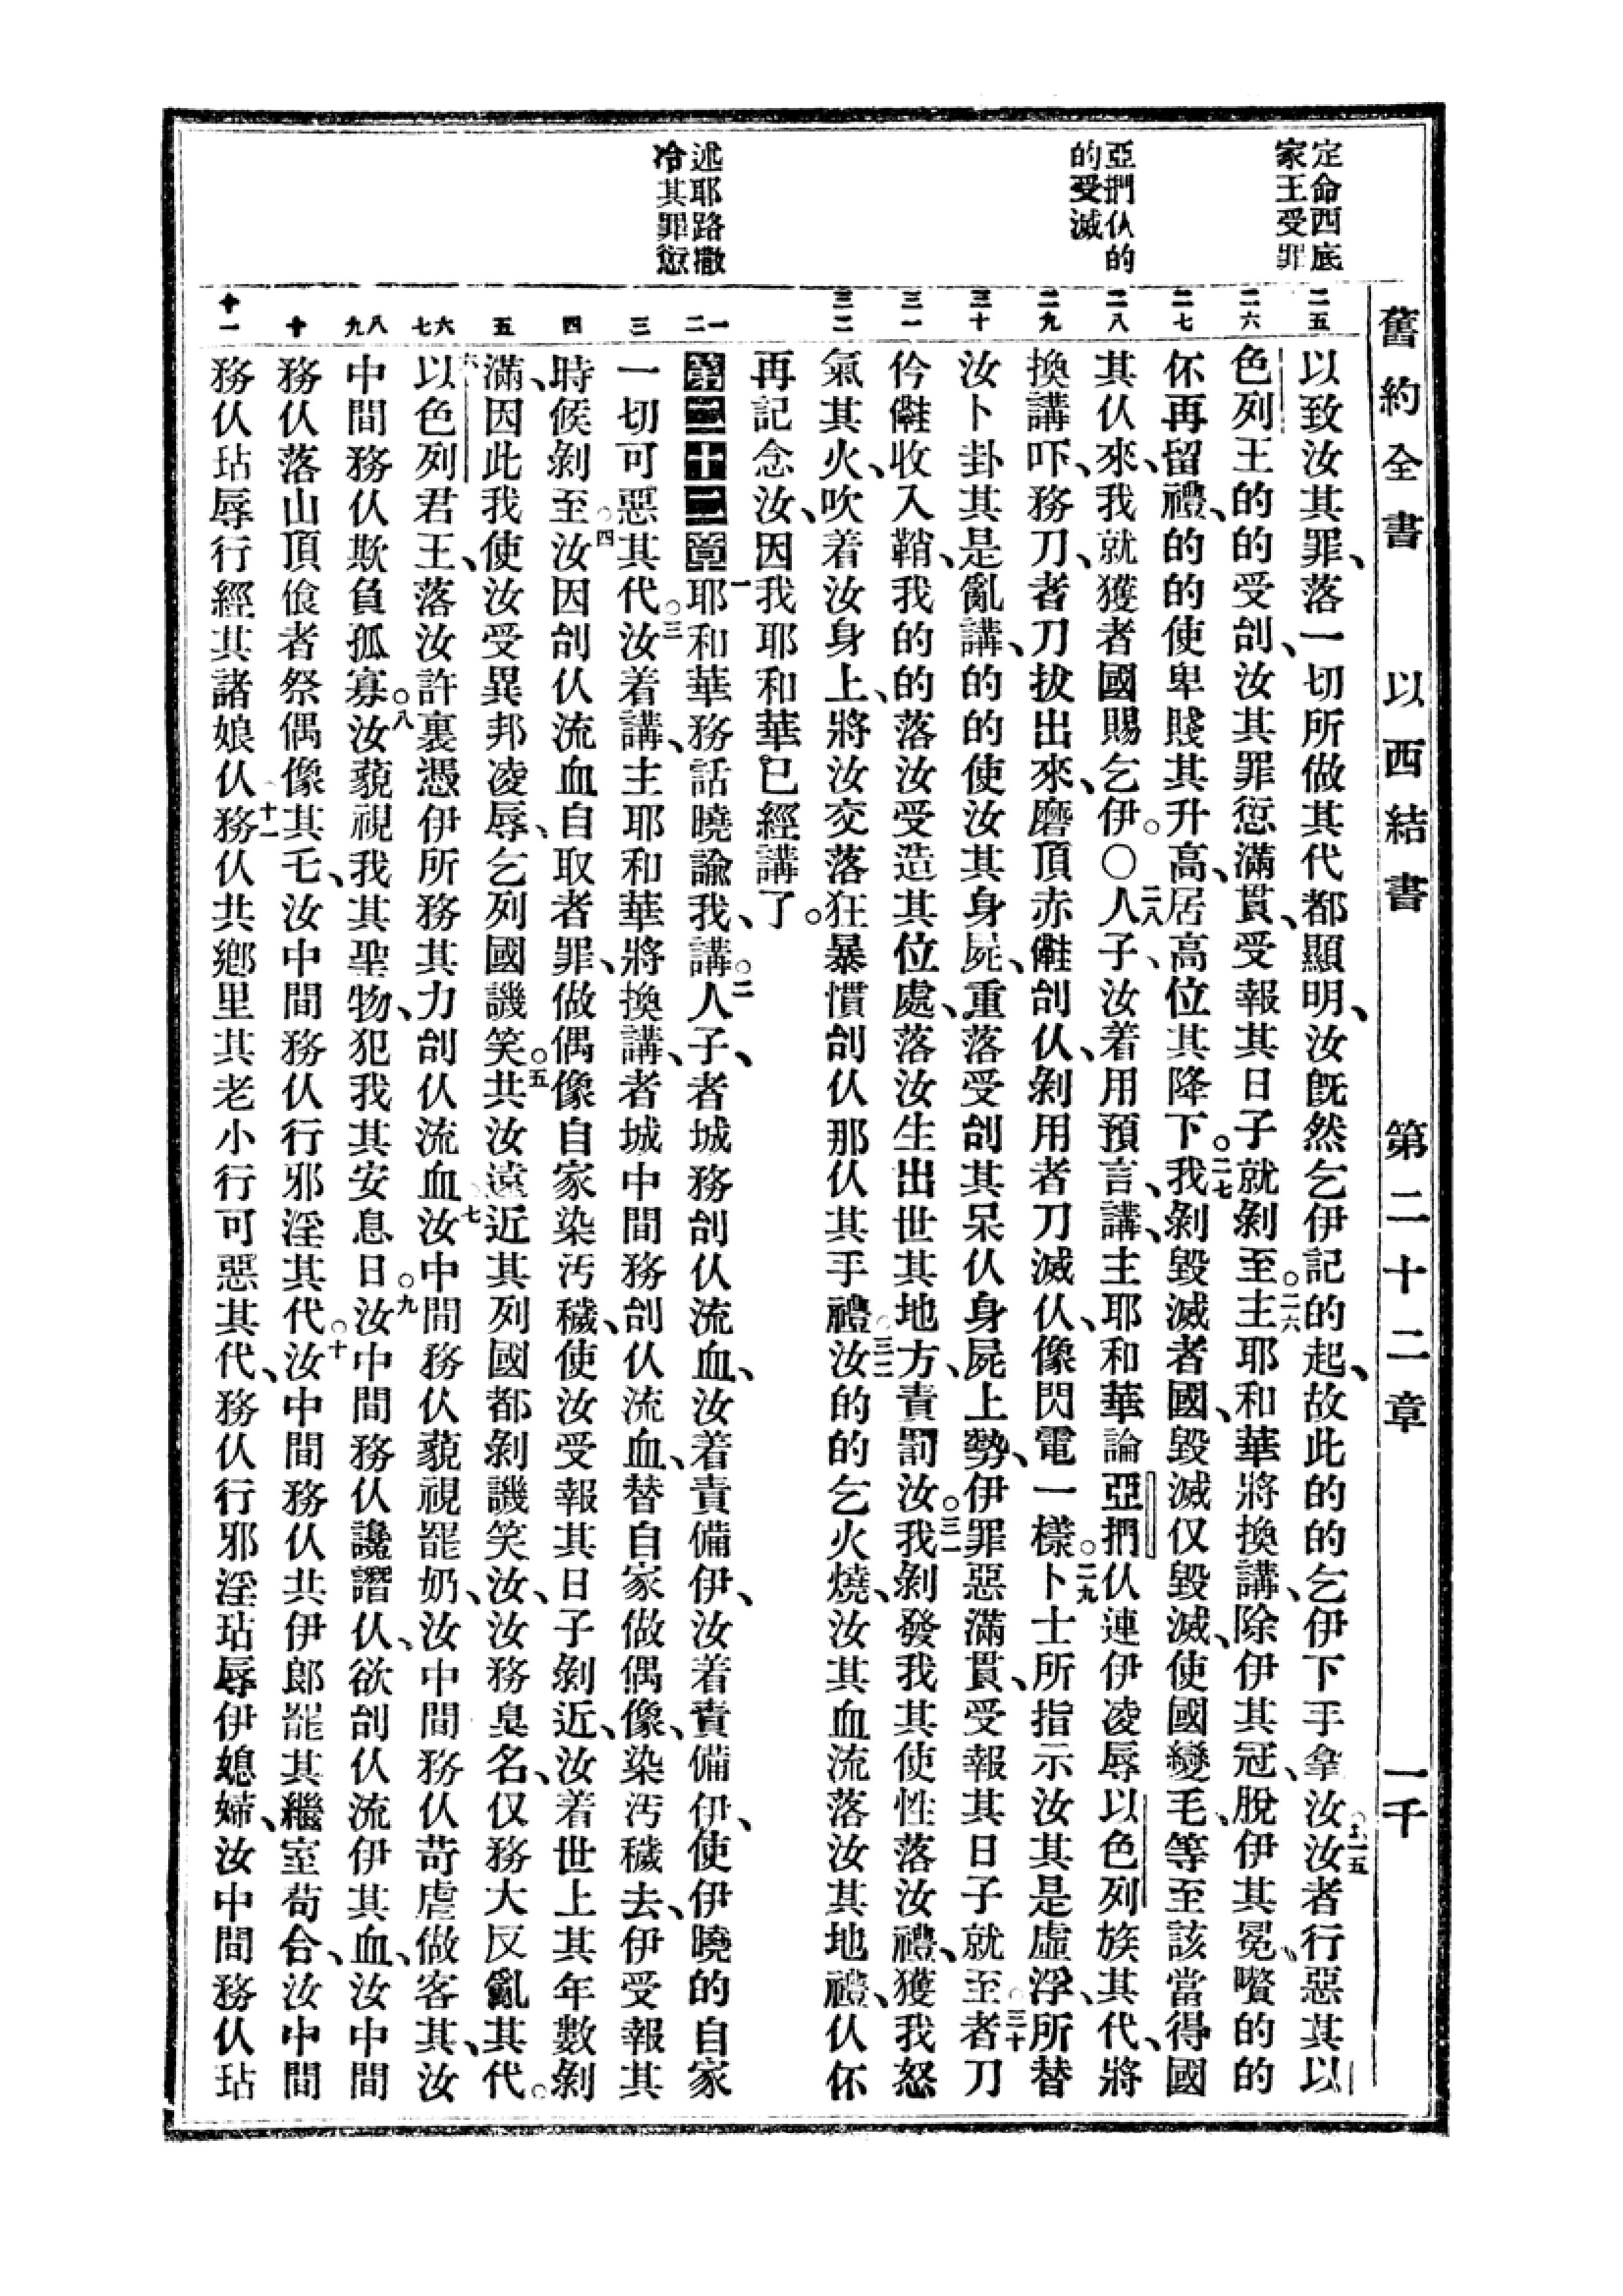 舊約全書 以西結書 第二十二章 一千
定命西底
家王受罪
亞捫仫的
的受滅
述耶路撒
冷其罪愆
二五
二六
二七
二八
二九
三十
三一
三二
一
二
三
四
五
六
七
八
九
十
十一
以致汝其罪、落一切所做其代都顯明、汝旣然乞伊記的起、故此的的乞伊下手拿汝○二五汝者行惡其以
色列王的的受刣、汝其罪愆滿貫、受報其日子就剝至○二六主耶和華將換講、除伊其冠、脫伊其冕、嚽的的
伓再留禮、的的使卑賤其升高、居高位其降下○二七我剝毀滅者國、毀滅仅毀滅、使國變乇、等至該當得國
其仫來、我就獲者國賜乞伊○〇二八人子、汝着用預言、講、主耶和華論亞捫仫連伊凌辱以色列族其代、將
換講吓、務刀、者刀拔出來、磨頂赤𠆧刣仫、剝用者刀滅仫、像閃電一樣○二九卜士所指示汝其是虛浮、所替
汝卜卦其是亂講、的的使汝其身屍、重落受刣其呆仫身屍上勢、伊罪惡滿貫、受報其日子就至○三十者刀
仱𠆧收入鞘、我的的落汝受造其位處、落汝生出世其地方、責罰汝○三一我剝發我其使性落汝禮、獲我怒
氣其火、吹着汝身上、將汝交落狂暴慣刣仫那仫其手禮○三二汝的的乞火燒、汝其血流落汝其地禮、仫伓
再記念汝、因我耶和華已經講了○
第二十二章一耶和華務話曉諭我、講○二人子、者城務刣仫流血、汝着責備伊、汝着責備伊、使伊曉的自家
一切可惡其代○三汝着講、主耶和華將換講、者城中間務刣仫流血、替自家做偶像、染汚穢去、伊受報其
時候剝至○四汝因刣仫流血自取者罪、做偶像自家染汚穢、使汝受報其日子剝近、汝着世上其年數剝
滿、因此我使汝受異邦凌辱、乞列國譏笑○五共汝遠近其列國都剝譏笑汝、汝務臭名、仅務大反亂其代○
六以色列君王、落汝許裏憑伊所務其力刣仫流血○七汝中間務仫藐視罷奶、汝中間務仫苛虐做客其、汝
中間務仫欺負孤寡○八汝藐視我其聖物、犯我其安息日○九汝中間務仫讒譖仫、欲刣仫流伊其血、汝中間
務仫落山頂飡者祭偶像其乇、汝中間務仫行邪淫其代○十汝中間務仫共伊郎罷其繼室苟合、汝中間
務仫玷辱行經其諸娘仫○十一務仫共鄕里其老小行可惡其代、務仫行邪淫玷辱伊媳婦、汝中間務仫玷